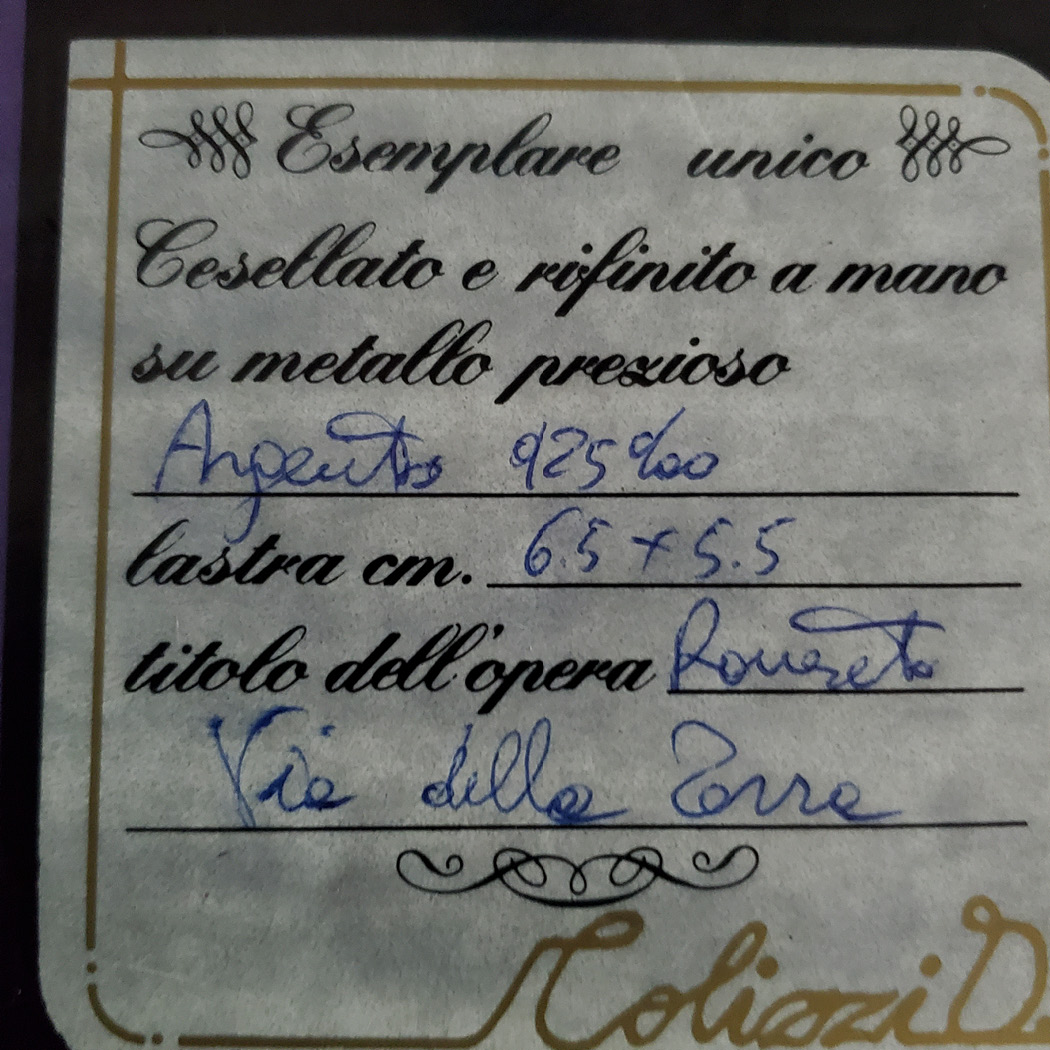 Esemplare unico
Cesellato e rifinito a mano
su metallo prezioso
Argento 925‰
lastra cm. 6.5 x 5.5
titolo dell'opera Rovereto
Via della Terra
Colizzi D.